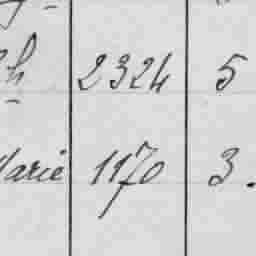 h 2324 5
Marie 1170 3.